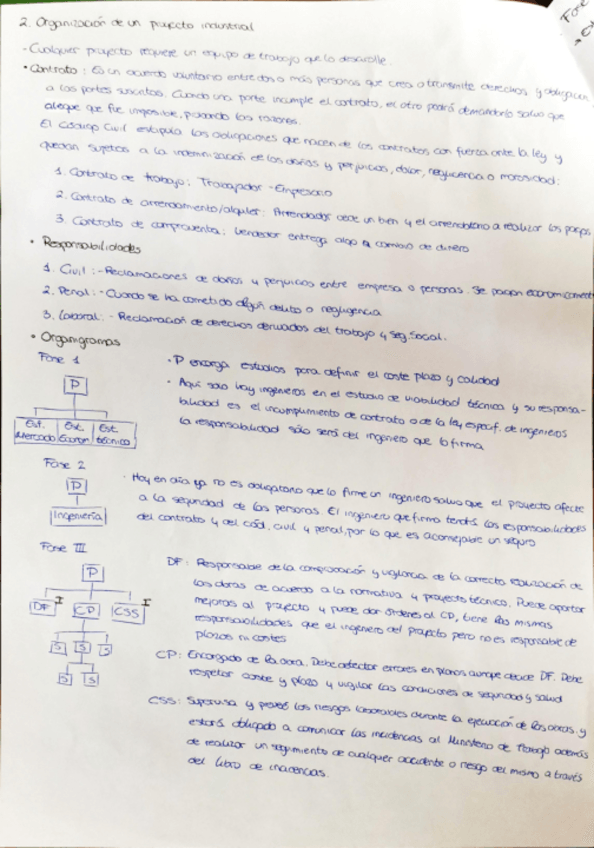 2. Organización de un proyecto industrial
- Cualquier proyecto requiere un equipo de trabajo que lo desarrolle.
• Contrato: Es un acuerdo voluntario entre dos o más personas que crea o transmite derechos y obligaciones
a las partes suscritas. Cuando una parte incumple el contrato, el otro podrá demandarlo salvo que
alegue que fue imposible, probando las razones.
El Código Civil estipula las obligaciones que nacen de los contratos, con fuerza ante la ley y
quedan sujetos a la indemnización de los daños y perjuicios, dolor, negligencia o morosidad:
1. Contrato de trabajo: Trabajador - Empresario
2. Contrato de arrendamiento/alquiler: Arrendador cede un bien y el arrendatario a realizar los pagos
3. Contrato de compraventa: Vendedor entrega algo a cambio de dinero
• Responsabilidades
1. Civil: - Reclamaciones de daños y perjuicios entre empresa o personas. Se pagan económicamente
2. Penal: - Cuando se ha cometido algún delito o negligencia
3. Laboral: - Reclamación de derechos derivados del trabajo y Seg. Social.
• Organigramas
Fase 1
P
Est. Mercado
Est. Econom
Est. técnico
• P encarga estudios para definir el coste plazo y calidad
• Aquí solo hay ingenieros en el estudio de viabilidad técnica y su responsa-
bilidad es el incumplimiento de contrato o de la ley específ. de ingenieros
la responsabilidad sólo será del ingeniero que lo firma
Fase 2
P
Ingeniería
• Hoy en día ya no es obligatorio que lo firme un ingeniero salvo que el proyecto afecte
a la seguridad de las personas. El ingeniero que firma tendrá las responsabilidades
del contrato y del cód. civil y penal, por lo que es aconsejable un seguro
Fase III
P
DF I
CP
CSS I
S S S
S S
DF: Responsable de la comprobación y vigilancia de la correcta realización de
las obras de acuerdo a la normativa y proyecto técnico. Puede aportar
mejoras al proyecto y puede dar órdenes al CD, tiene las mismas
responsabilidades que el ingeniero del proyecto pero no es responsable de
plazos ni costes
CP: Encargado de la obra. Debe detectar errores en planos aunque decide DF. Debe
respetar coste y plazo y vigilar las condiciones de seguridad y salud
CSS: Supervisa y prevé los riesgos laborables durante la ejecución de las obras y
estará obligado a comunicar las incidencias al Ministerio de Trabajo además
de realizar un seguimiento de cualquier accidente o riesgo del mismo a través
del libro de incidencias.
Fase